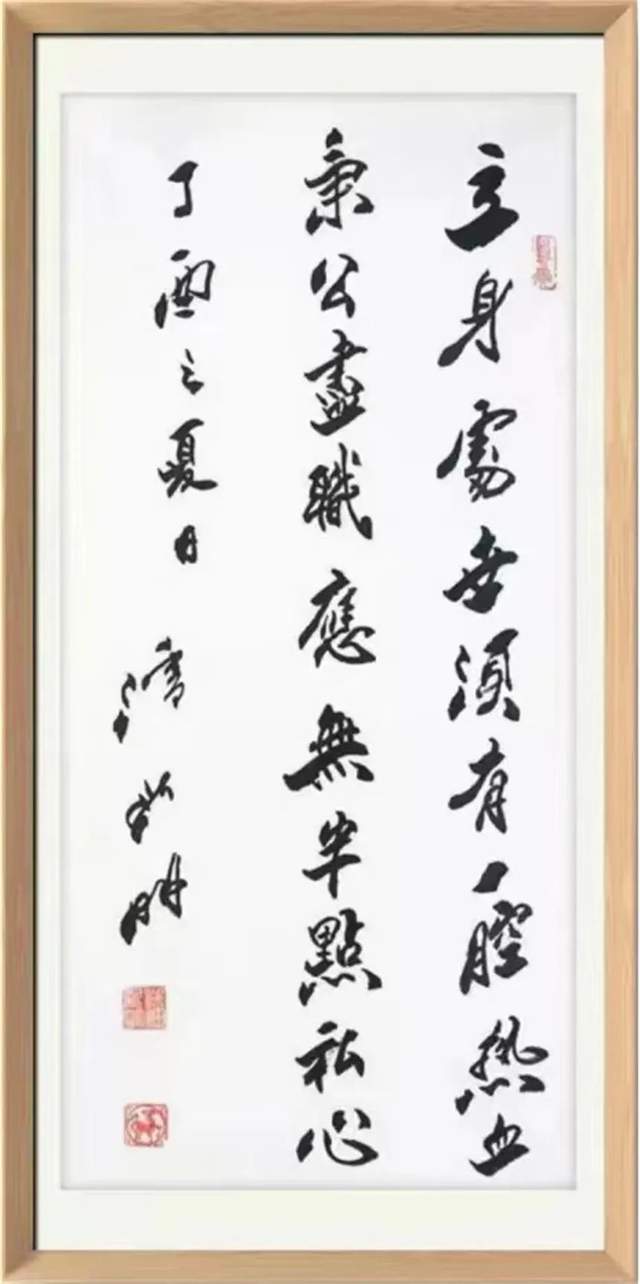 立身處世須有一腔热血
秉公盡職應無半點私心
丁酉之夏月